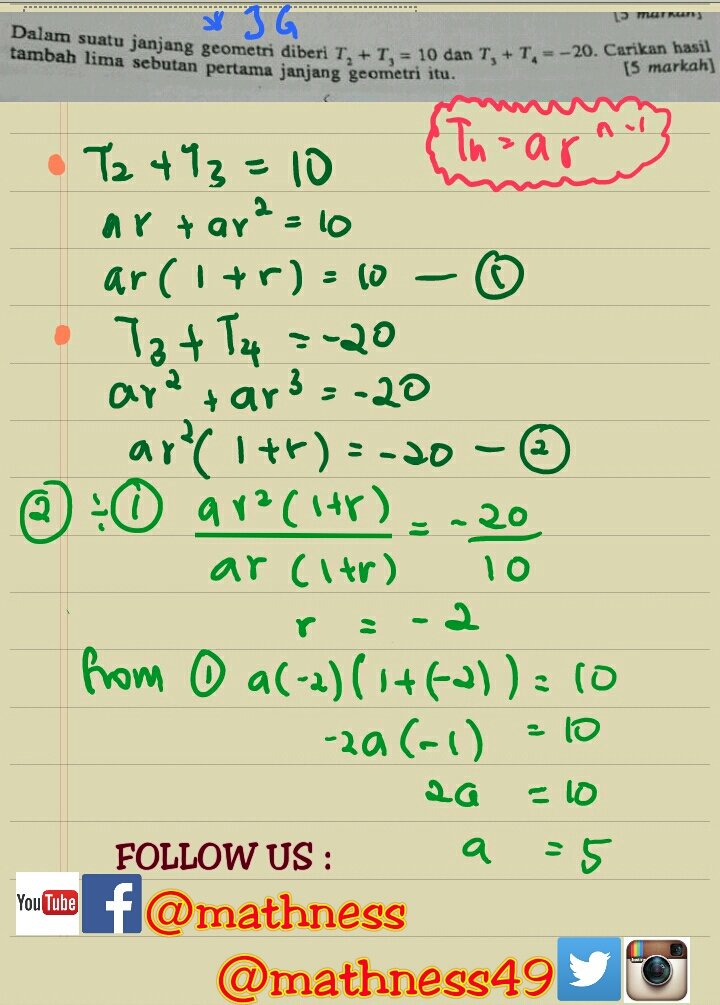 * JG
[5 markah]
Dalam suatu janjang geometri diberi T₂ + T₃ = 10 dan T₃ + T₄ = −20. Carikan hasil
tambah lima sebutan pertama janjang geometri itu. [5 markah]
Tn = ar^(n-1)
T₂ + T₃ = 10
ar + ar² = 10
ar(1+r) = 10 — ①
T₃ + T₄ = -20
ar² + ar³ = -20
ar²(1+r) = -20 — ②
② ÷ ① ar²(1+r) / ar(1+r) = -20 / 10
r = -2
from ① a(-2)(1+(-2)) = 10
-2a(-1) = 10
2a = 10
a = 5
FOLLOW US :
You Tube f @mathness
@mathness49